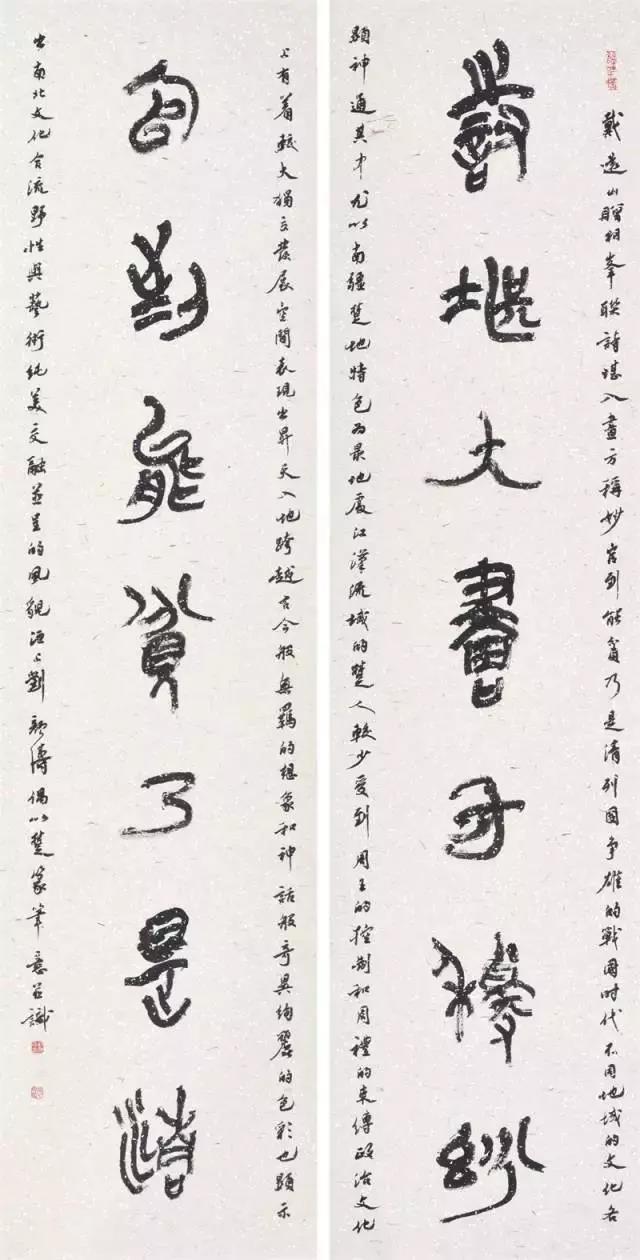 戴遠山贈相峯聯詩堪入畫方稱妙官到能貧乃是清列國爭雄的戰國時代不同地域的文化各
詩堪入畫方稱妙
顯神通其中尤以南疆楚地特色為最地處江漢流域的楚人較少受到周王的控制和周禮的束縛政治文化
上有着較大獨立發展空間表現出昇天入地跨越古今般無羈的想象和神話般奇異絢麗的色彩也顯示
官到能貧乃是清
出南北文化合流野性與藝術純美交融並呈的風貌洹上劉顏濤偶以楚篆筆意 識